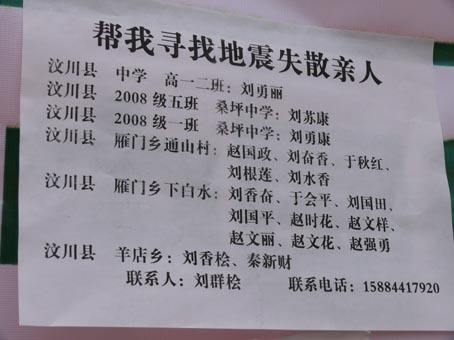 帮我寻找地震失散亲人
汶川县 中学 高一二班：刘勇丽
汶川县 2008级五班 桑坪中学：刘苏康
汶川县 2008级一班 桑坪中学：刘勇康
汶川县 雁门乡通山村：赵国政、刘奋香、于秋红、
刘根莲、刘水香
汶川县 雁门乡下白水：刘香奋、于会平、刘国田、
刘国平、赵时花、赵文样、
赵文丽、赵文花、赵强勇
汶川县 羊店乡：刘香桧、秦新财
联系人：刘群桧 联系电话：15884417920